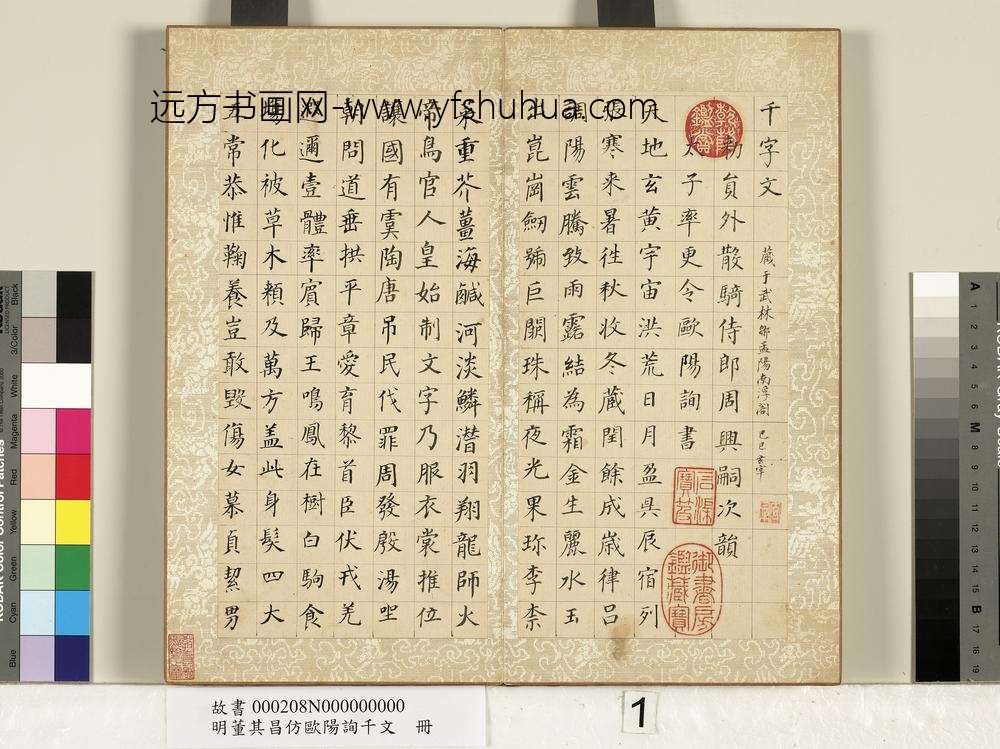 远方书画网-www.yfshuhua.com
千字文
藏于武林鄒孟陽南浮閣 己巳玄宰
勑員外散騎侍郎周興嗣次韻
太子率更令歐陽詢書
乾隆鑑賞
石渠寶笈
御書房鑑藏寶
天地玄黃宇宙洪荒日月盈昃辰宿列
張寒来暑往秋收冬藏閏餘成歲律呂
調陽雲騰致雨露結為霜金生麗水玉
出崑崗劒號巨闕珠稱夜光果珎李柰
菜重芥薑海鹹河淡鱗潛羽翔龍師火
帝鳥官人皇始制文字乃服衣裳推位
讓國有虞陶唐吊民伐罪周發殷湯坐
朝問道垂拱平章愛育黎首臣伏戎羌
遐邇壹體率賓歸王鳴鳳在樹白駒食
場化被草木賴及萬方盖此身髮四大
五常恭惟鞠養豈敢毀傷女慕貞絜男
故書 000208N000000000
明董其昌仿歐陽詢千文 冊
1
KODAK Color Control Patches
Blue
Cyan
Green
Yellow
Red
Magenta
White
3/Color
Black
A
1
2
3
4
5
6
M
8
9
10
11
12
13
14
15
B
17
18
19